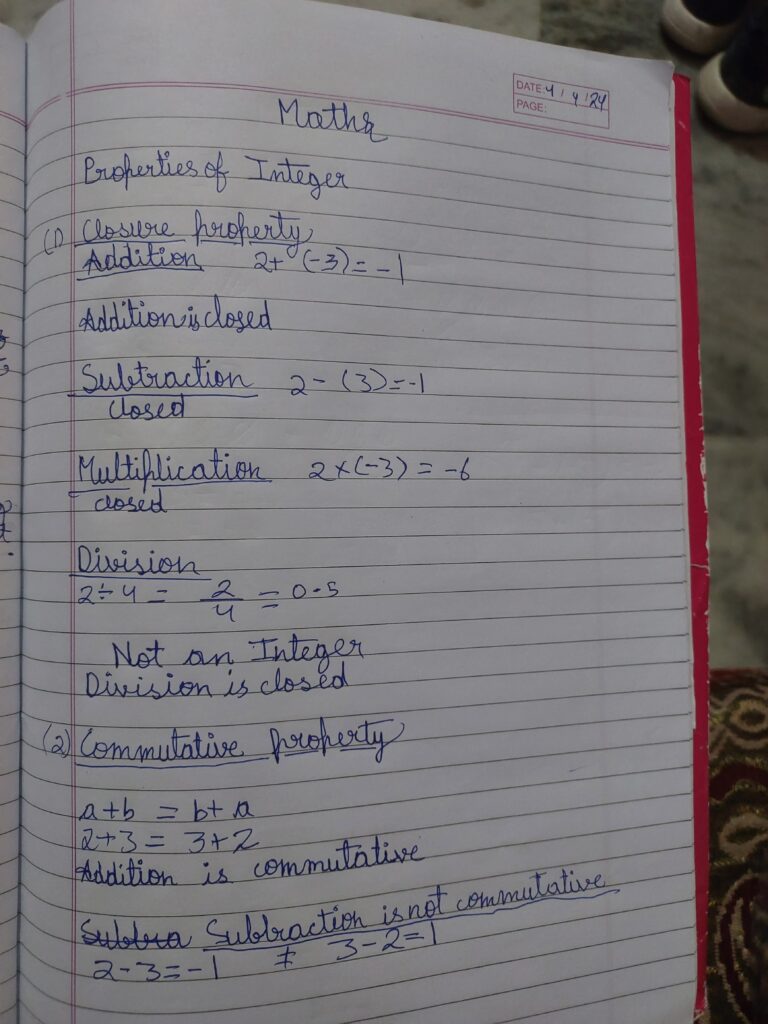 DATE: 4/4/24
PAGE:
Maths
Properties of Integer
(1) Closure property
Addition 2+ (-3) = -1
Addition is closed
Subtraction 2 - (3) = -1
closed
Multiplication 2 × (-3) = -6
closed
Division
2 ÷ 4 = 2/4 = 0.5
Not an Integer
Division is closed
(2) Commutative property
a+b = b+a
2+3 = 3+2
Addition is commutative
Subbra Subtraction is not commutative
2-3 = -1 ≠ 3-2 = 1